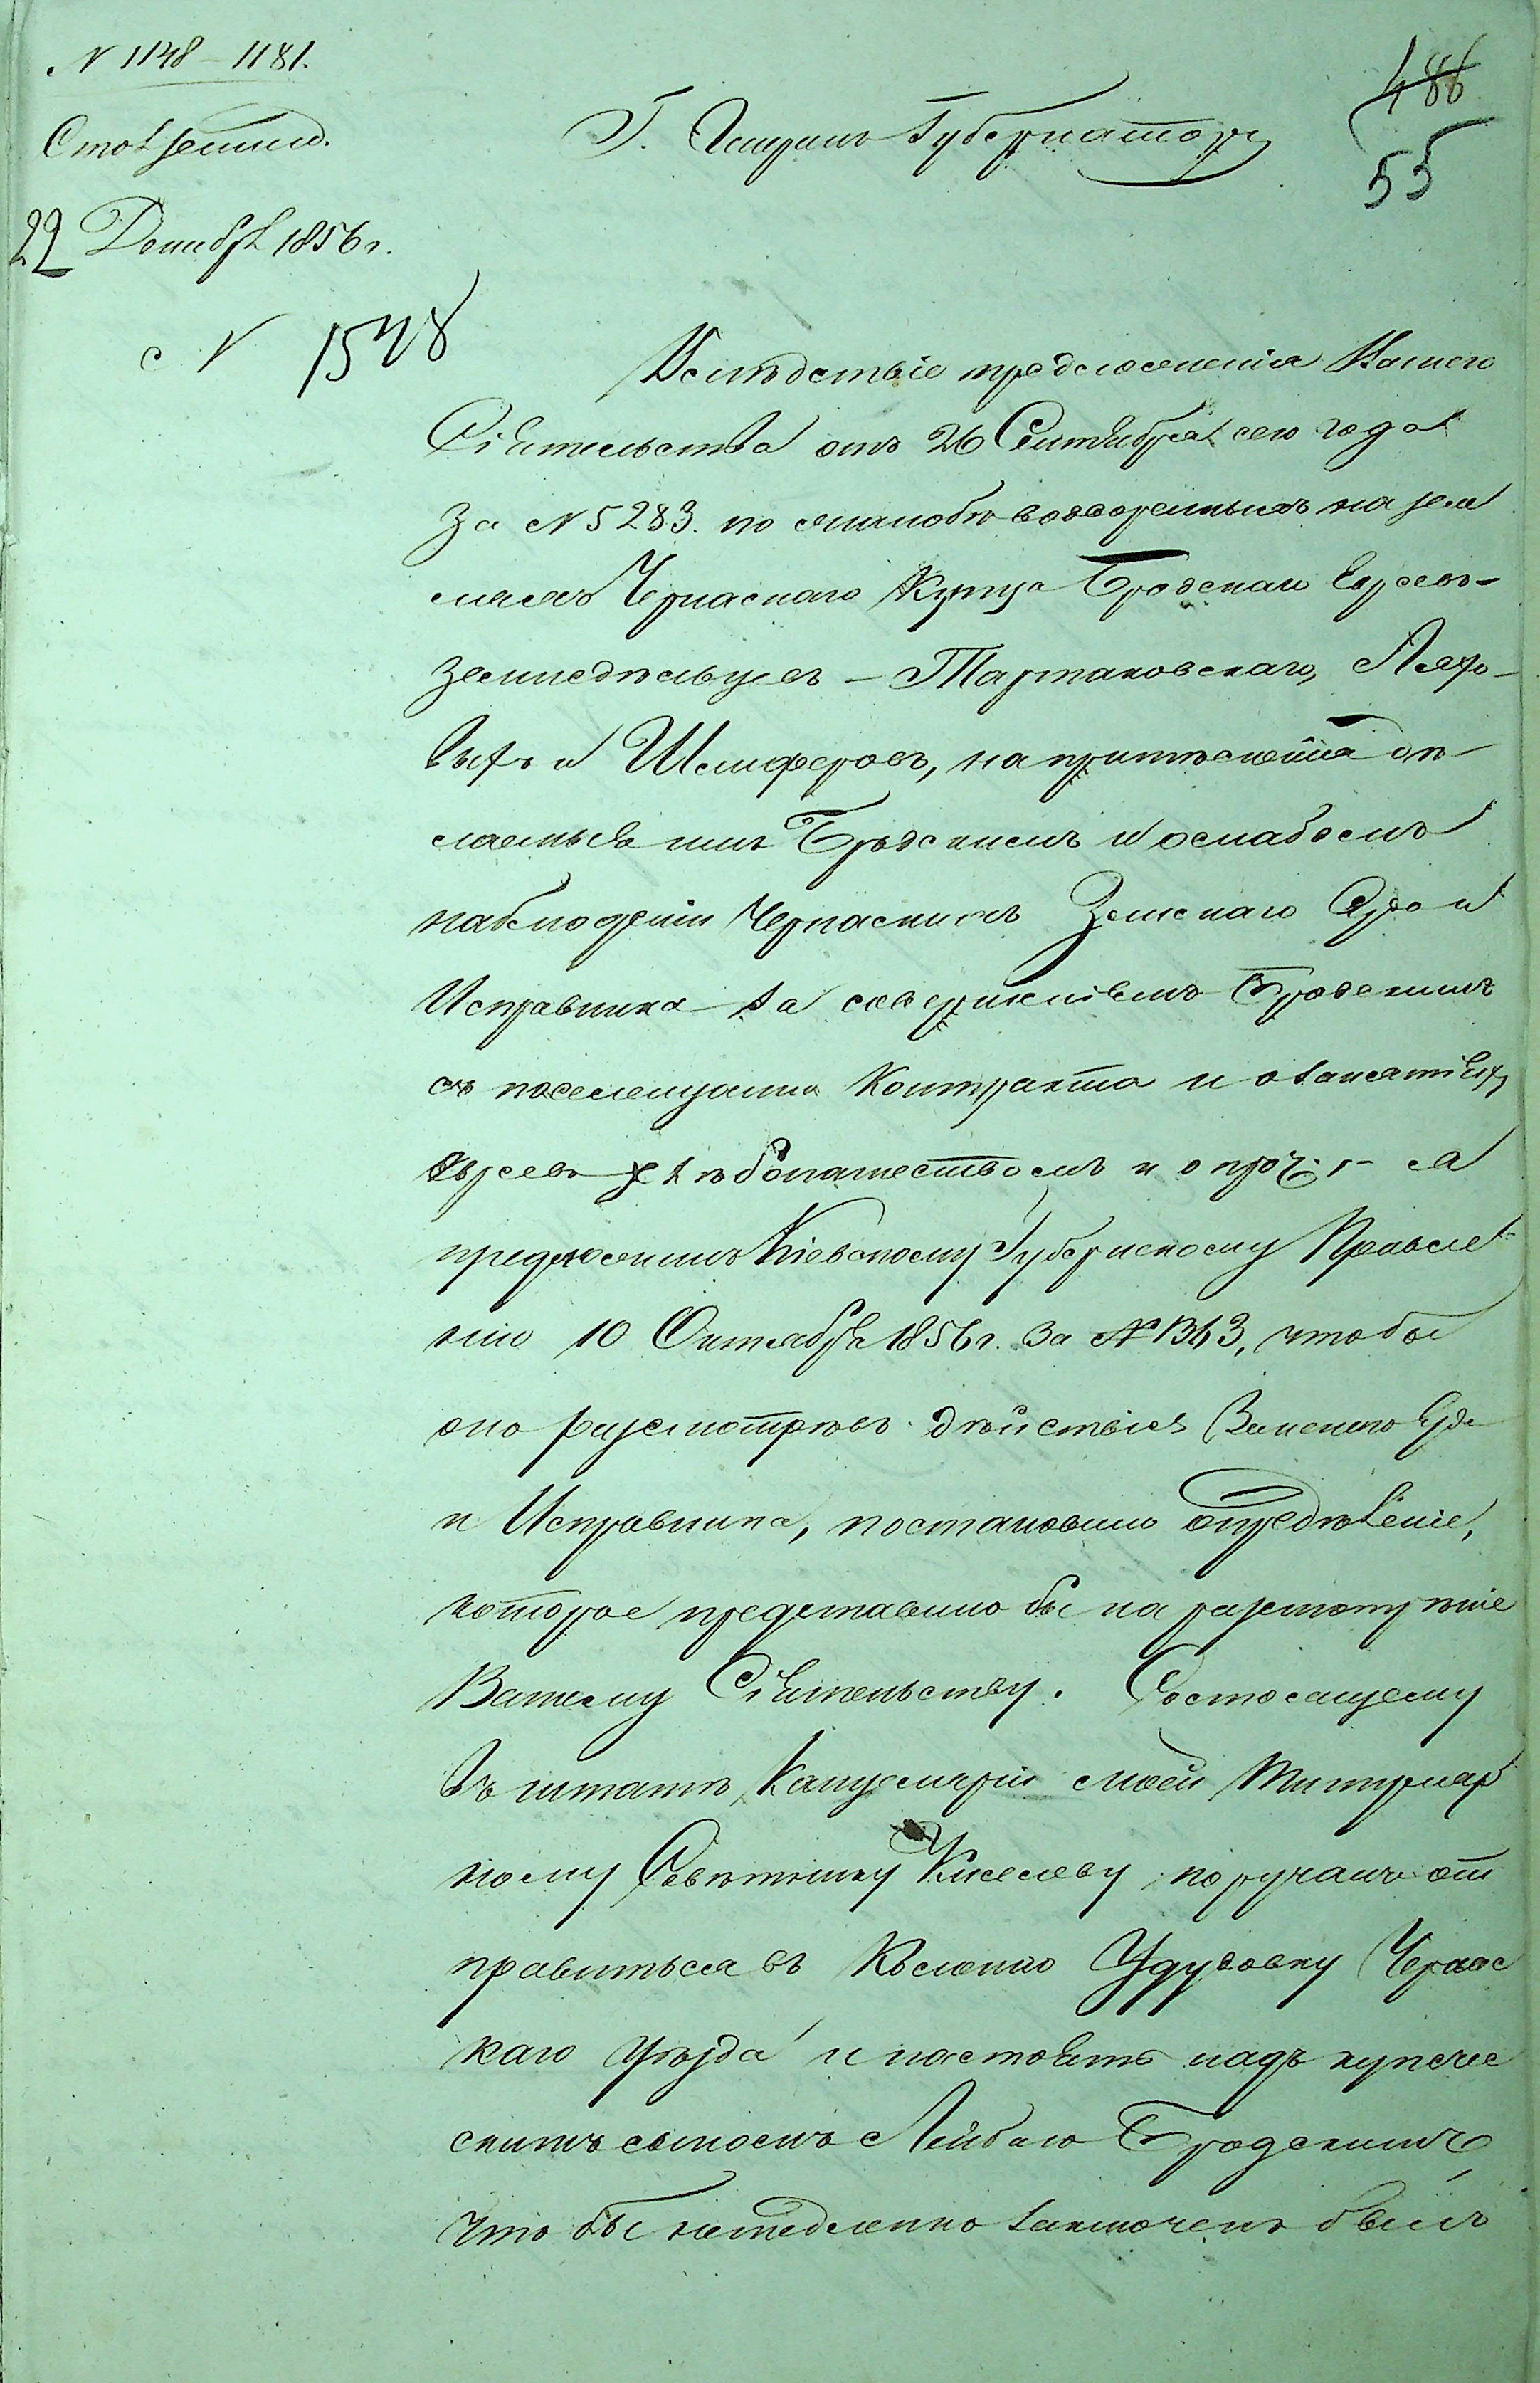 N 1148 – 1181.
488
55
Г. Генералъ Губернатору
22 Декабря 1856 г.
с N 1548
Вслѣдствіе предложенія Вашего
Сіятельства отъ 26 Сентября сего года
за N 5283. по жалобѣ водворенныхъ на зем
ляхъ Черкаскаго Купца Бродскаго Евреевъ-
земледѣльцевъ – Тартаковскаго,
и Шлиферовъ, на притѣсненія дѣ-
лаемыя имъ Бродскимъ и о слабомъ
наблюденіи Черкаскихъ Земскаго Суда и
Исправника за совершеніемъ Бродскимъ
съ поселенцами Контракта и о занятіи
Евреевъ хлѣбопашествомъ и о проч. – я
предложилъ Кіевскому Губернскому Правле
нію 10 Октября 1856 г. за N 1363, чтобы
оно разсмотрѣвъ дѣйствія Земскаго Суда
и Исправника, постановило опредѣленіе,
которое представило бы на разсмотрѣніе
Вашему Сіятельству. Состоящему
въ штатѣ Канцеляріи моей Титуляр
ному Совѣтнику Киселеву поручалъ от
правиться въ Колонію Черкас
каго уѣзда и настоять надъ купече
скимъ сыномъ Лейбою Бродскимъ,
что бы немедленно заключенъ былъ